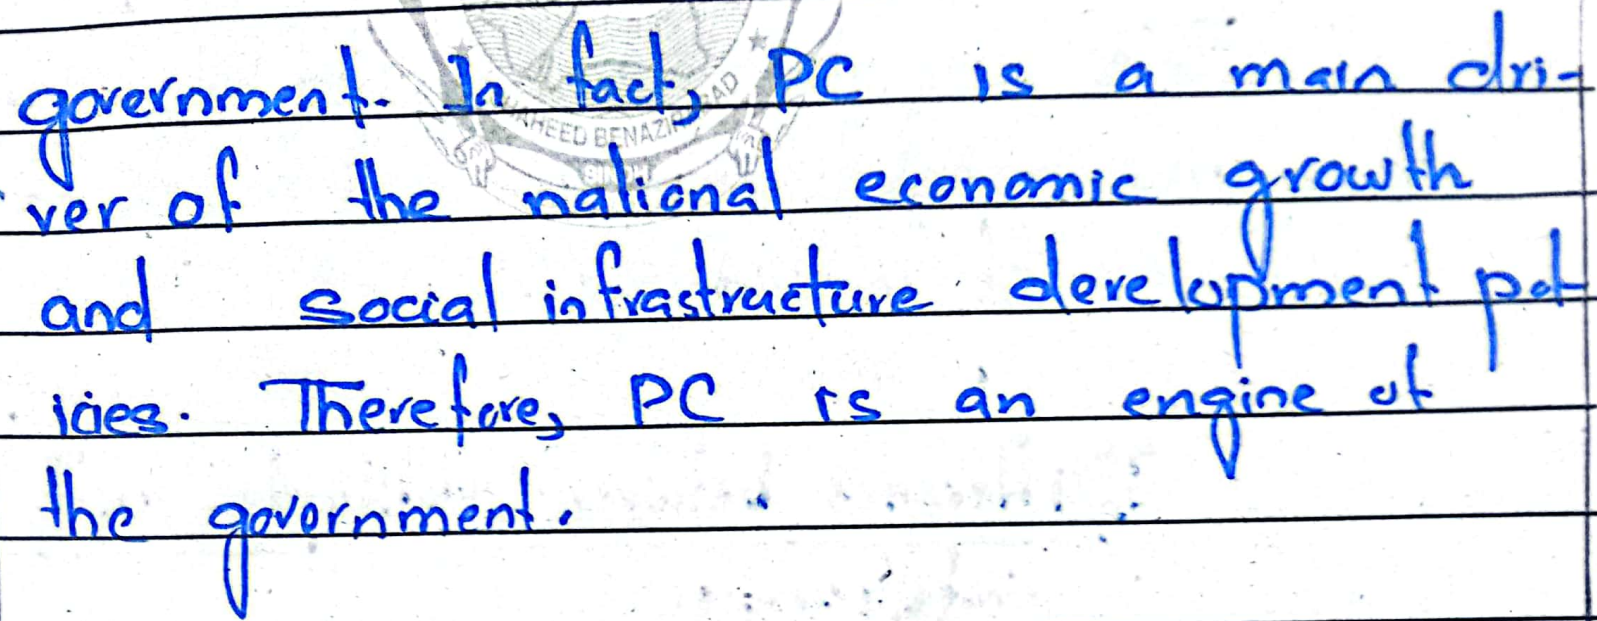 government. In fact, PC is a main dri-
ver of the national economic growth
and social infrastructure development pol-
icies. Therefore, PC is an engine of
the government.
SHAHEED BENAZIRABAD
SINDH